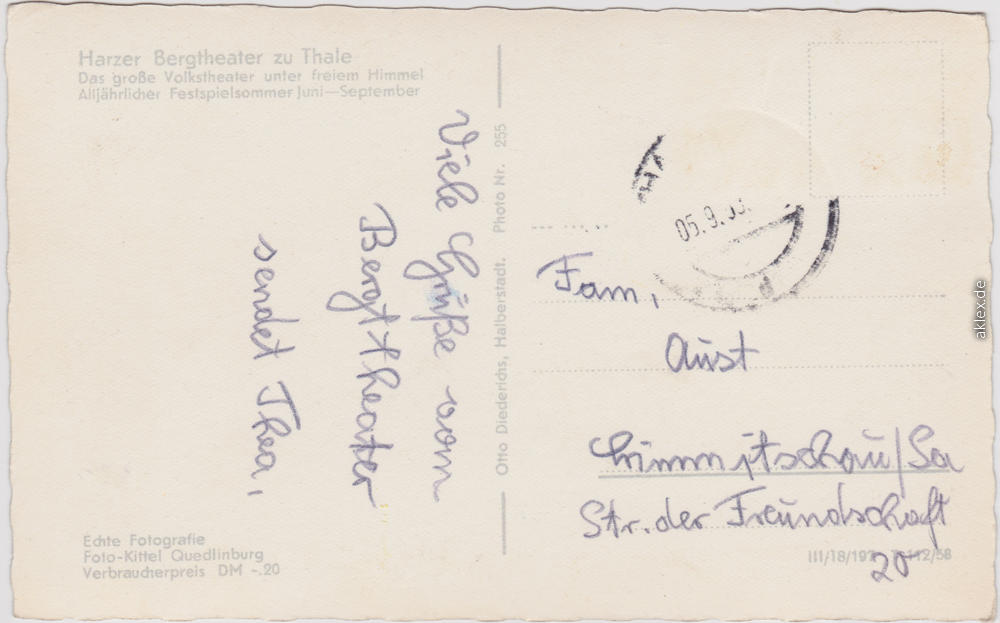 Harzer Bergtheater zu Thale
Das große Volkstheater unter freiem Himmel
Alljährlicher Festspielsommer Juni—September
Viele Grüße vom
Bergttheater
sendet Thea,
Echte Fotografie
Foto-Kittel Quedlinburg
Verbraucherpreis DM -.20
Otto Diederichs, Halberstadt. Photo Nr. 255
05.9.
Fam,
Aust
Crimmitschau/Sa
Str. der Freundschaft
20
III/18/197 12/58
aklex.de